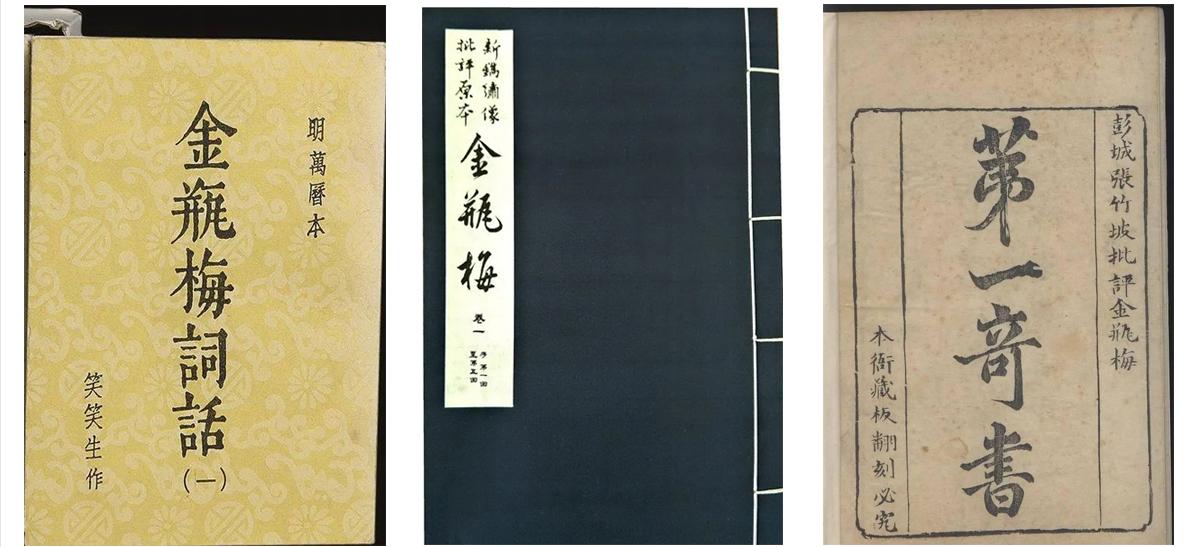 明萬曆本
金瓶梅詞話(一)
笑笑生作
新鐫繡像
批評原本
金瓶梅
卷一
序第一回
至第五回
彭城張竹坡批評金瓶梅
第一奇書
本衙藏板翻刻必究